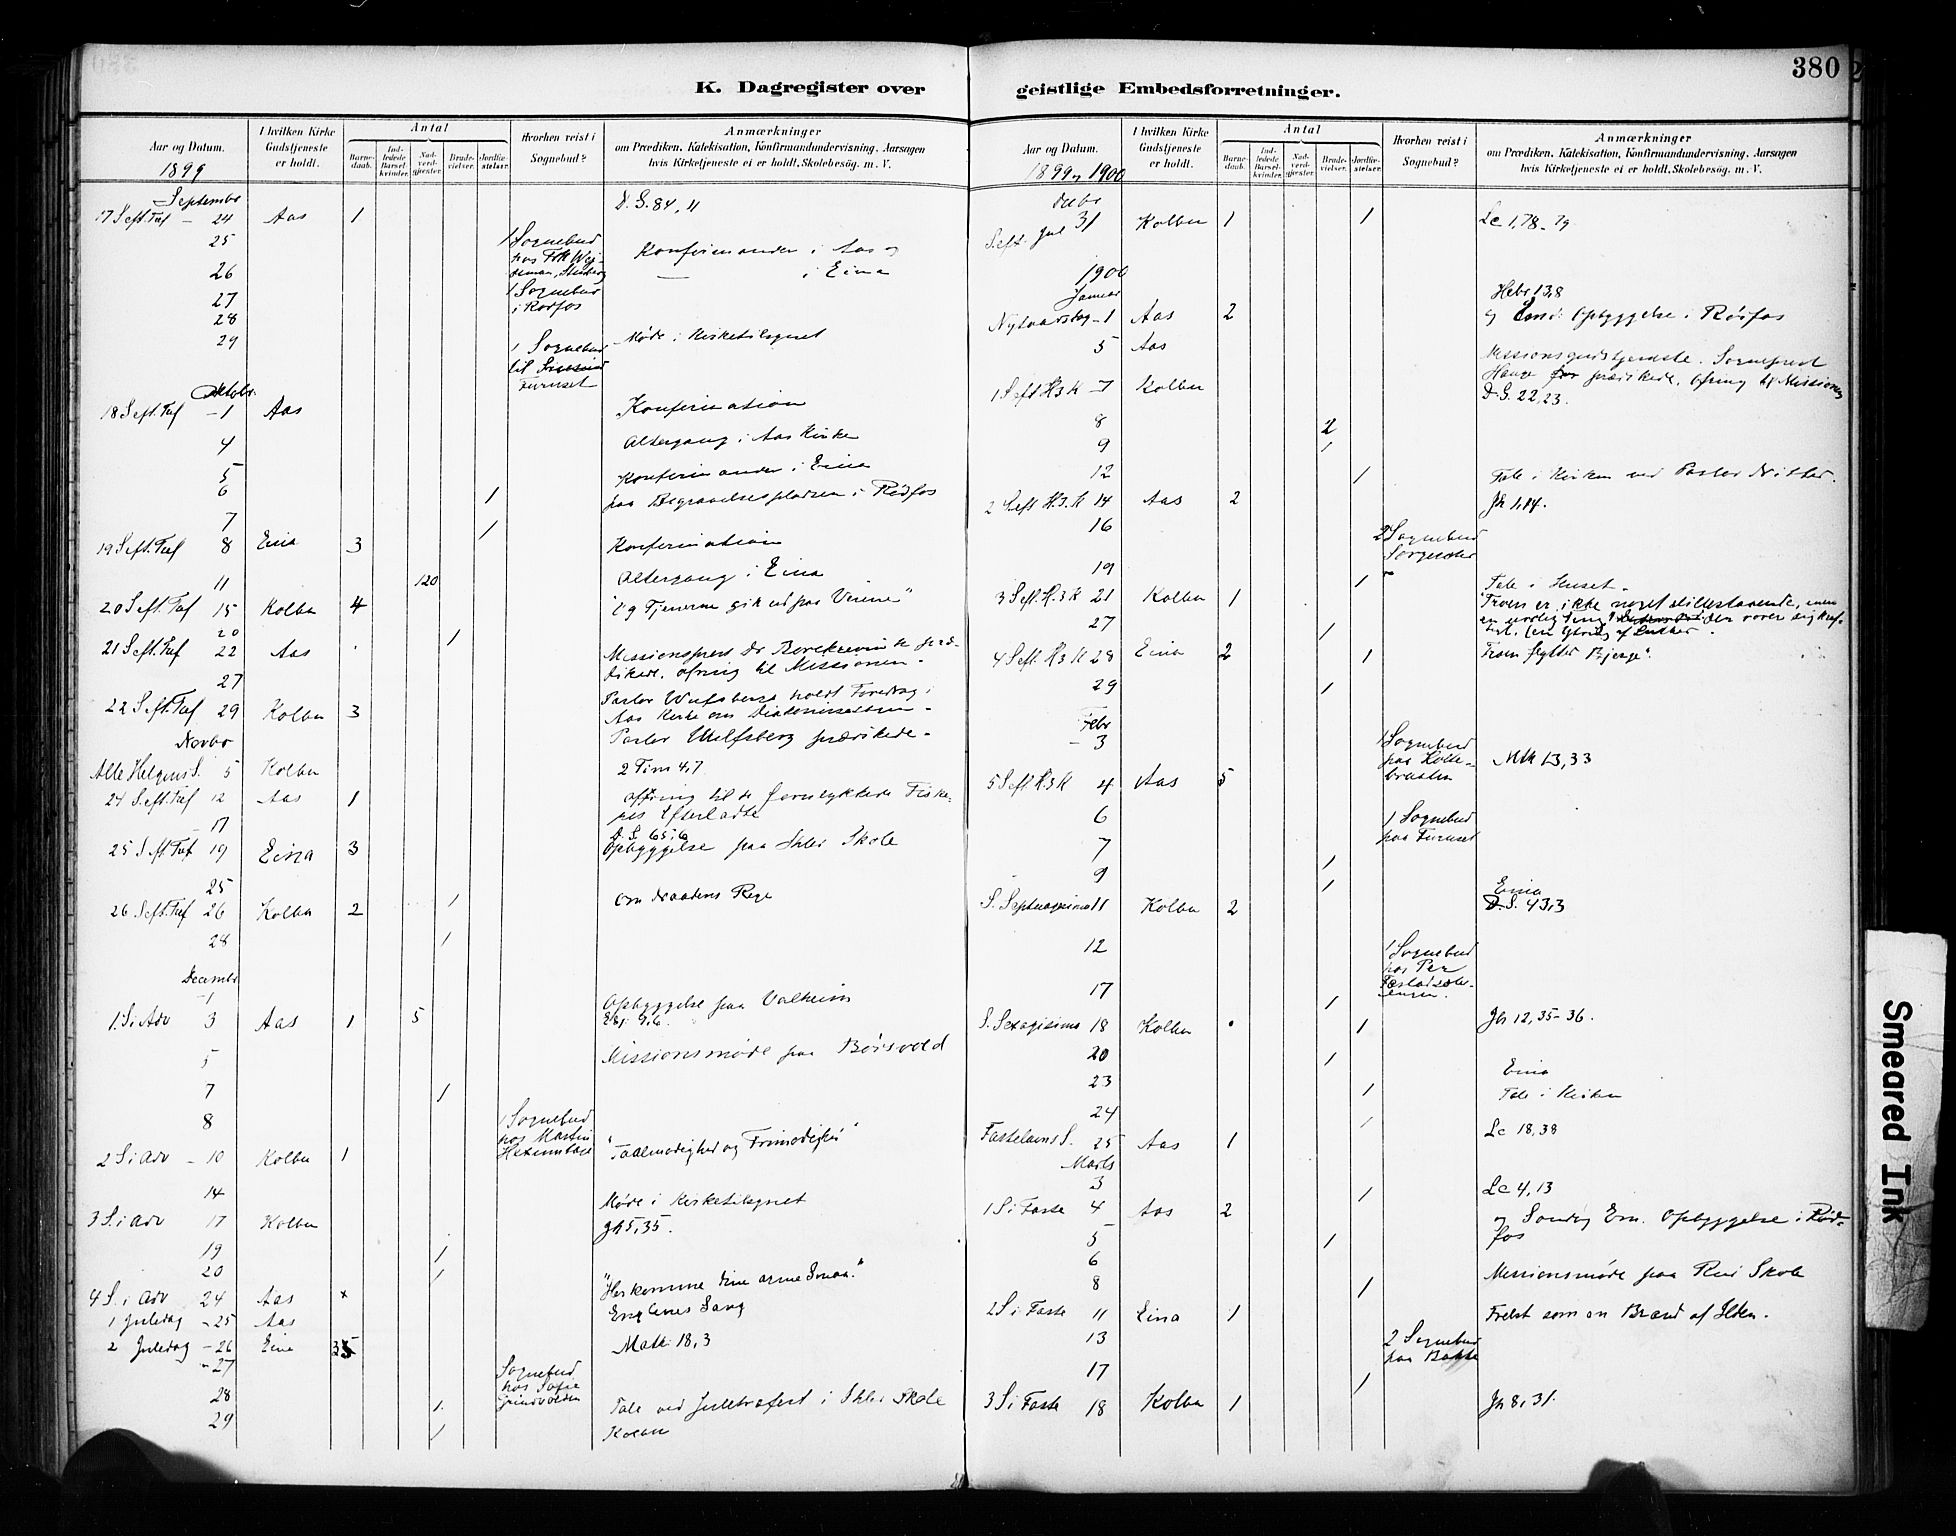 380
K. Dagregister over
geistlige Embedsforretninger.
Aar og Datum.
1899
I hvilken Kirke
Gudstjeneste
er holdt.
Antal
Barne-
daab.
Ind-
ledede
Barsel-
kvinder.
Nad-
verd-
gjester.
Brude-
vielser.
Jordfæ-
stelser.
Hvorhen reist i
Sognebud?
Anmærkninger
om Prædiken, Katekisation, Konfirmandundervisning, Aarsagen
hvis Kirketjeneste ei er holdt, Skolebesøg. m. V.
September
17 S eft. Tref - 24 Aas 1 D. S. 84, 11
25 1 Sognebud
Konfirmander i Aas og
26 — i Eina
27 1 Sognebud
i Rødfos
28
29 1 Sognebud Møde i Kirketilsynet
til
Furuset
Octobr.
18 S eft. Tref - 1 Aas Konfirmation
4 Altergang i Aas Kirke
5 Konfirmander i Eina
6 1 paa Begravelsespladsen i Rødfos
7 1
19 S eft. Tref 8 Eina 3 Konfirmation
11 120 Altergang i Eina
20 S eft. Tref 15 Kolbu 4 "Og Tjenerne gik ud paa Veiene"
20 1
21 S eft. Tref 22 Aas Missionsprest Dr Borchgrevink præ-
dikede. Ofring til Missionen.
27 Pastor Wulfsberg holdt Foredrag i
22 S eft. Tref 29 Kolbu 3 Aas Kirke om
Pastor Wulfsberg prædikede.
Novbr
Alle Helgens S. 5 Kolbu 2 Tim 4,7
24 S. eft. Tref 12 Aas 1 Offring til de forulykkede Fiske-
res Efterladte
17 D. S. 65,6
25 S eft. Tref 19 Eina 3 Opbyggelse paa Skole
25 Om Naadens Rige
26 S eft. Tref 26 Kolbu 2 1
28 1
Decembr
1 Opbyggelse paa Valheim
1 S. i Adv 3 Aas 1 5 Es. 9,6.
5 Missionsmøde paa Børsvold
7 1
8 1 Sognebud
hos Martin
2 S i Adv - 10 Kolbu 1 "Taalmodighed og Frimodighed"
14 Møde i Kirketilsynet
3 S. i Adv 17 Kolbu Jh 5,35.
19 1
20 1
4 S. i Adv 24 Aas x "Her komme dine arme Smaa."
1 Juledag - 25 Aas Englenes Sang
2 Juledag - 26 Eina Math. 18,3
- 27 Sognebud
hos Sofie
28 1 Tale ved Juletræfest i Skole
29 1 Kolbu
Aar og Datum.
1899 og 1900
I hvilken Kirke
Gudstjeneste
er holdt.
Antal
Barne-
daab.
Ind-
ledede
Barsel-
kvinder.
Nad-
verd-
gjester.
Brude-
vielser.
Jordfæ-
stelser.
Hvorhen reist i
Sognebud?
Anmærkninger
om Prædiken, Katekisation, Konfirmandundervisning, Aarsagen
hvis Kirketjeneste ei er holdt, Skolebesøg. m. V.
Decbr
S eft. Jul 31 Kolbu 1 1 Lc 1,78-79
1900
Januar Hebr 13,8
Nytaarsdag - 1 Aas 2 og Opbyggelse i Rødfos
5 Aas Missionsgudstjeneste. Sogneprest
Hauge prædikede. Ofring til Missionen
1 S eft H3K - 7 Kolbu D. S. 22,23.
8 2
9 1
12 1 Tale i Kirken ved Pastor
2 S eft H.3.K 14 Aas 2 Jh 1,14.
16 2 Sognebud
19 1 Tale i Huset.
3 S eft. H.3 K 21 Kolbu 1 "Troen er ikke noget stillestaaende, men
27 1
4 S eft H3 K 28 Eina 2 1 Troen flytter Bjerge".
29 1
Febr
- 3 1 Sognebud
paa Kolbu-
braaten Mth 13,33
5 S eft H3 K 4 Aas 5
6 1 Sognebud
paa Furuset
7 1
9 1 Eina
S. Septuagesima 11 Kolbu 2 D. S. 43,3
12 1 Sognebud
hos Per
17 1
S. Sexagesima 18 Kolbu 1 Jh 12,35-36.
20 1 Eina
23 1 Tale i Kirken
24 1
Fastelavns S. 25 Aas 1 Lc 18,38
Marts
3 1 Lc 4,13
1 S i Faste 4 Aas 2 og Søndag Em. Opbyggelse i Rød-
fos
5 1
6 Missionsmøde paa Skole
8 1
2 S i Faste 11 Eina 1 Frelst som en Brand af Ilden.
13 2 Sognebud
paa Bakke
17 1
3 S i Faste 18 Kolbu 1 Jh 8,31.
Smeared Ink